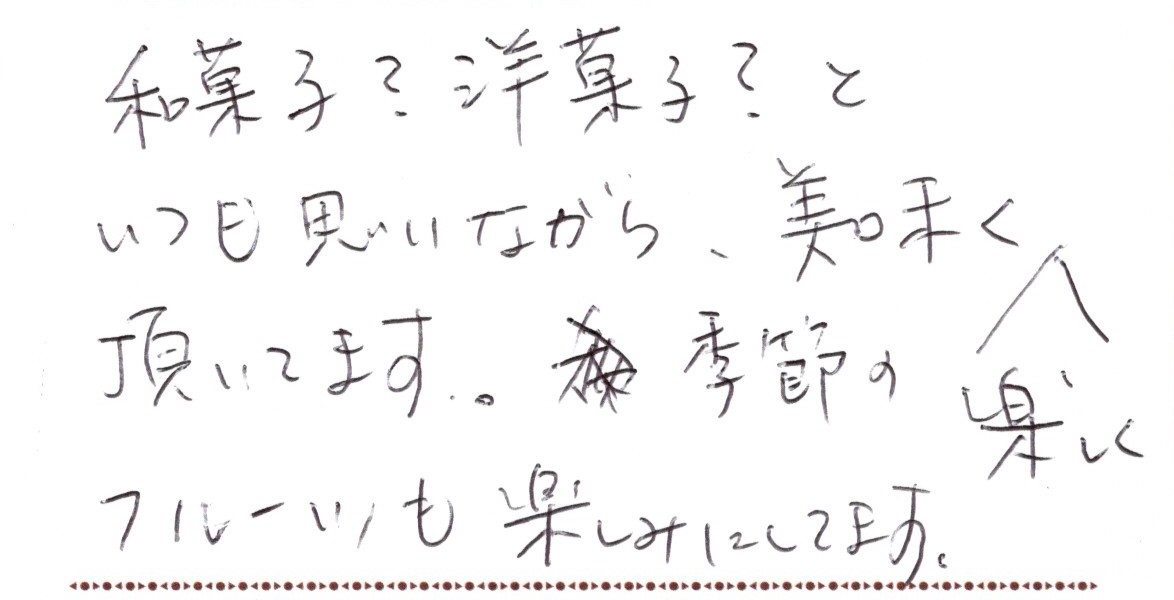 和菓子?洋菓子?と
いつも思いながら、美味く
楽しく
頂いてます。季節の
フルーツも楽しみにしてます。